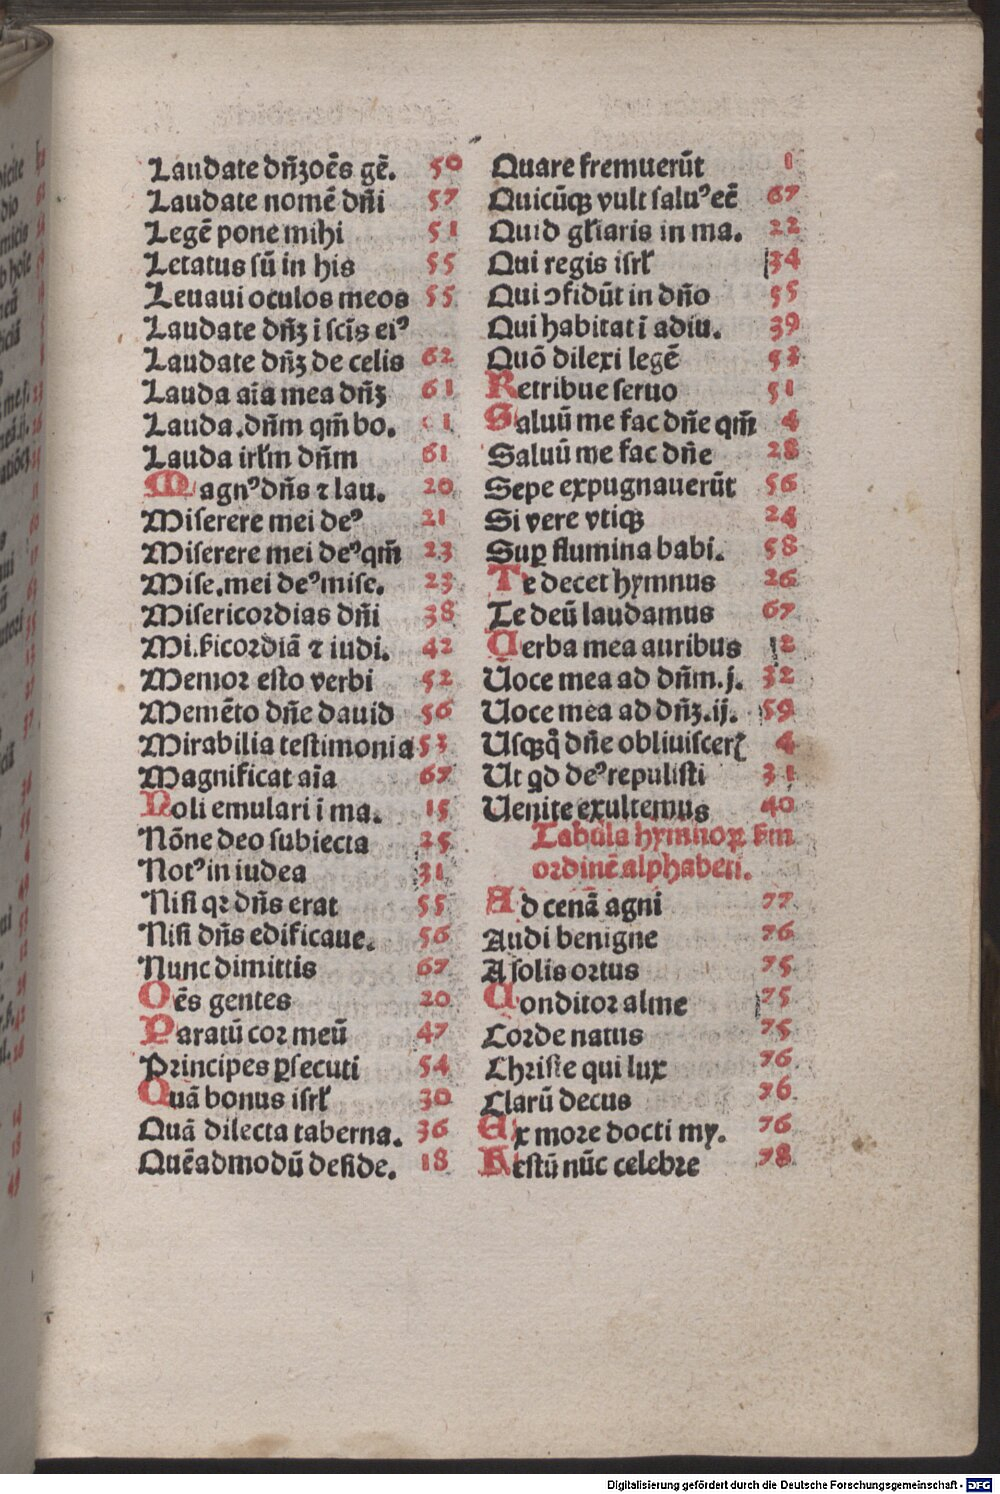 Laudate dn̄ꝫ oēs gē. 50
Laudate nomē dn̄i 57
Legē pone mihi 51
Letatus sū in his 55
Leuaui oculos meos 55
Laudate dn̄ꝫ i scīs eiꝰ
Laudate dn̄ꝫ de celis 62
Lauda aīa mea dn̄ꝫ 61
Lauda.dn̄m qm̄ bo. 1
Lauda irl̄m dn̄m 61
Magnꝰ dn̄s ⁊ lau. 20
Miserere mei deꝰ 21
Miserere mei deꝰ qm̄ 23
Mise.mei deꝰ misc. 23
Misericordias dn̄i 38
Mi.ẜicordiā ⁊ iudi. 42
Memor esto verbi 52
Memēto dn̄e dauid 56
Mirabilia testimonia 53
Magnificat aīa 67
Noli emulari i ma. 15
Nōne deo subiecta 25
Notꝰ in iudea 31
Nisi qꝛ dn̄s erat 55
Nisi dn̄s edificaue. 56
Nunc dimittis 67
Oēs gentes 20
Paratū cor meū 47
Principes ꝑsecuti 54
Quā bonus isrl̄ 30
Quā dilecta taberna. 36
Quēadmodū deside. 18
Quare fremuerūt 1
Quicūqꝫ vult saluꝰ eē 67
Quid gl̄iaris in ma. 22
Qui regis isrl̄ 34
Qui ɔfidūt in dn̄o 55
Qui habitat ī adiu. 39
Quō dilexi legē 53
Retribue seruo 51
Saluū me fac dn̄e qm̄ 4
Saluū me fac dn̄e 28
Sepe expugnauerūt 56
Si vere vtiqꝫ 24
Suꝑ flumina babi. 58
Te decet hymnus 26
Te deū laudamus 67
Uerba mea auribus 2
Uoce mea ad dn̄m.j. 32
Uoce mea ad dn̄ꝫ.ij. 59
Usqꝫq̄ dn̄e obliuiscerꝭ 4
Ut qd deꝰ repulisti 31
Uenite exultemus 40
Tabula hymnoꝝ ẜm
ordinē alphabeti.
Ad cenā agni 77
Audi benigne 76
A solis ortus 75
Conditor alme 75
Corde natus 75
Christe qui lux 76
Clarū decus 76
Ex more docti my. 76
Festū nūc celebre 78
Digitalisierung gefördert durch die Deutsche Forschungsgemeinschaft - DFG